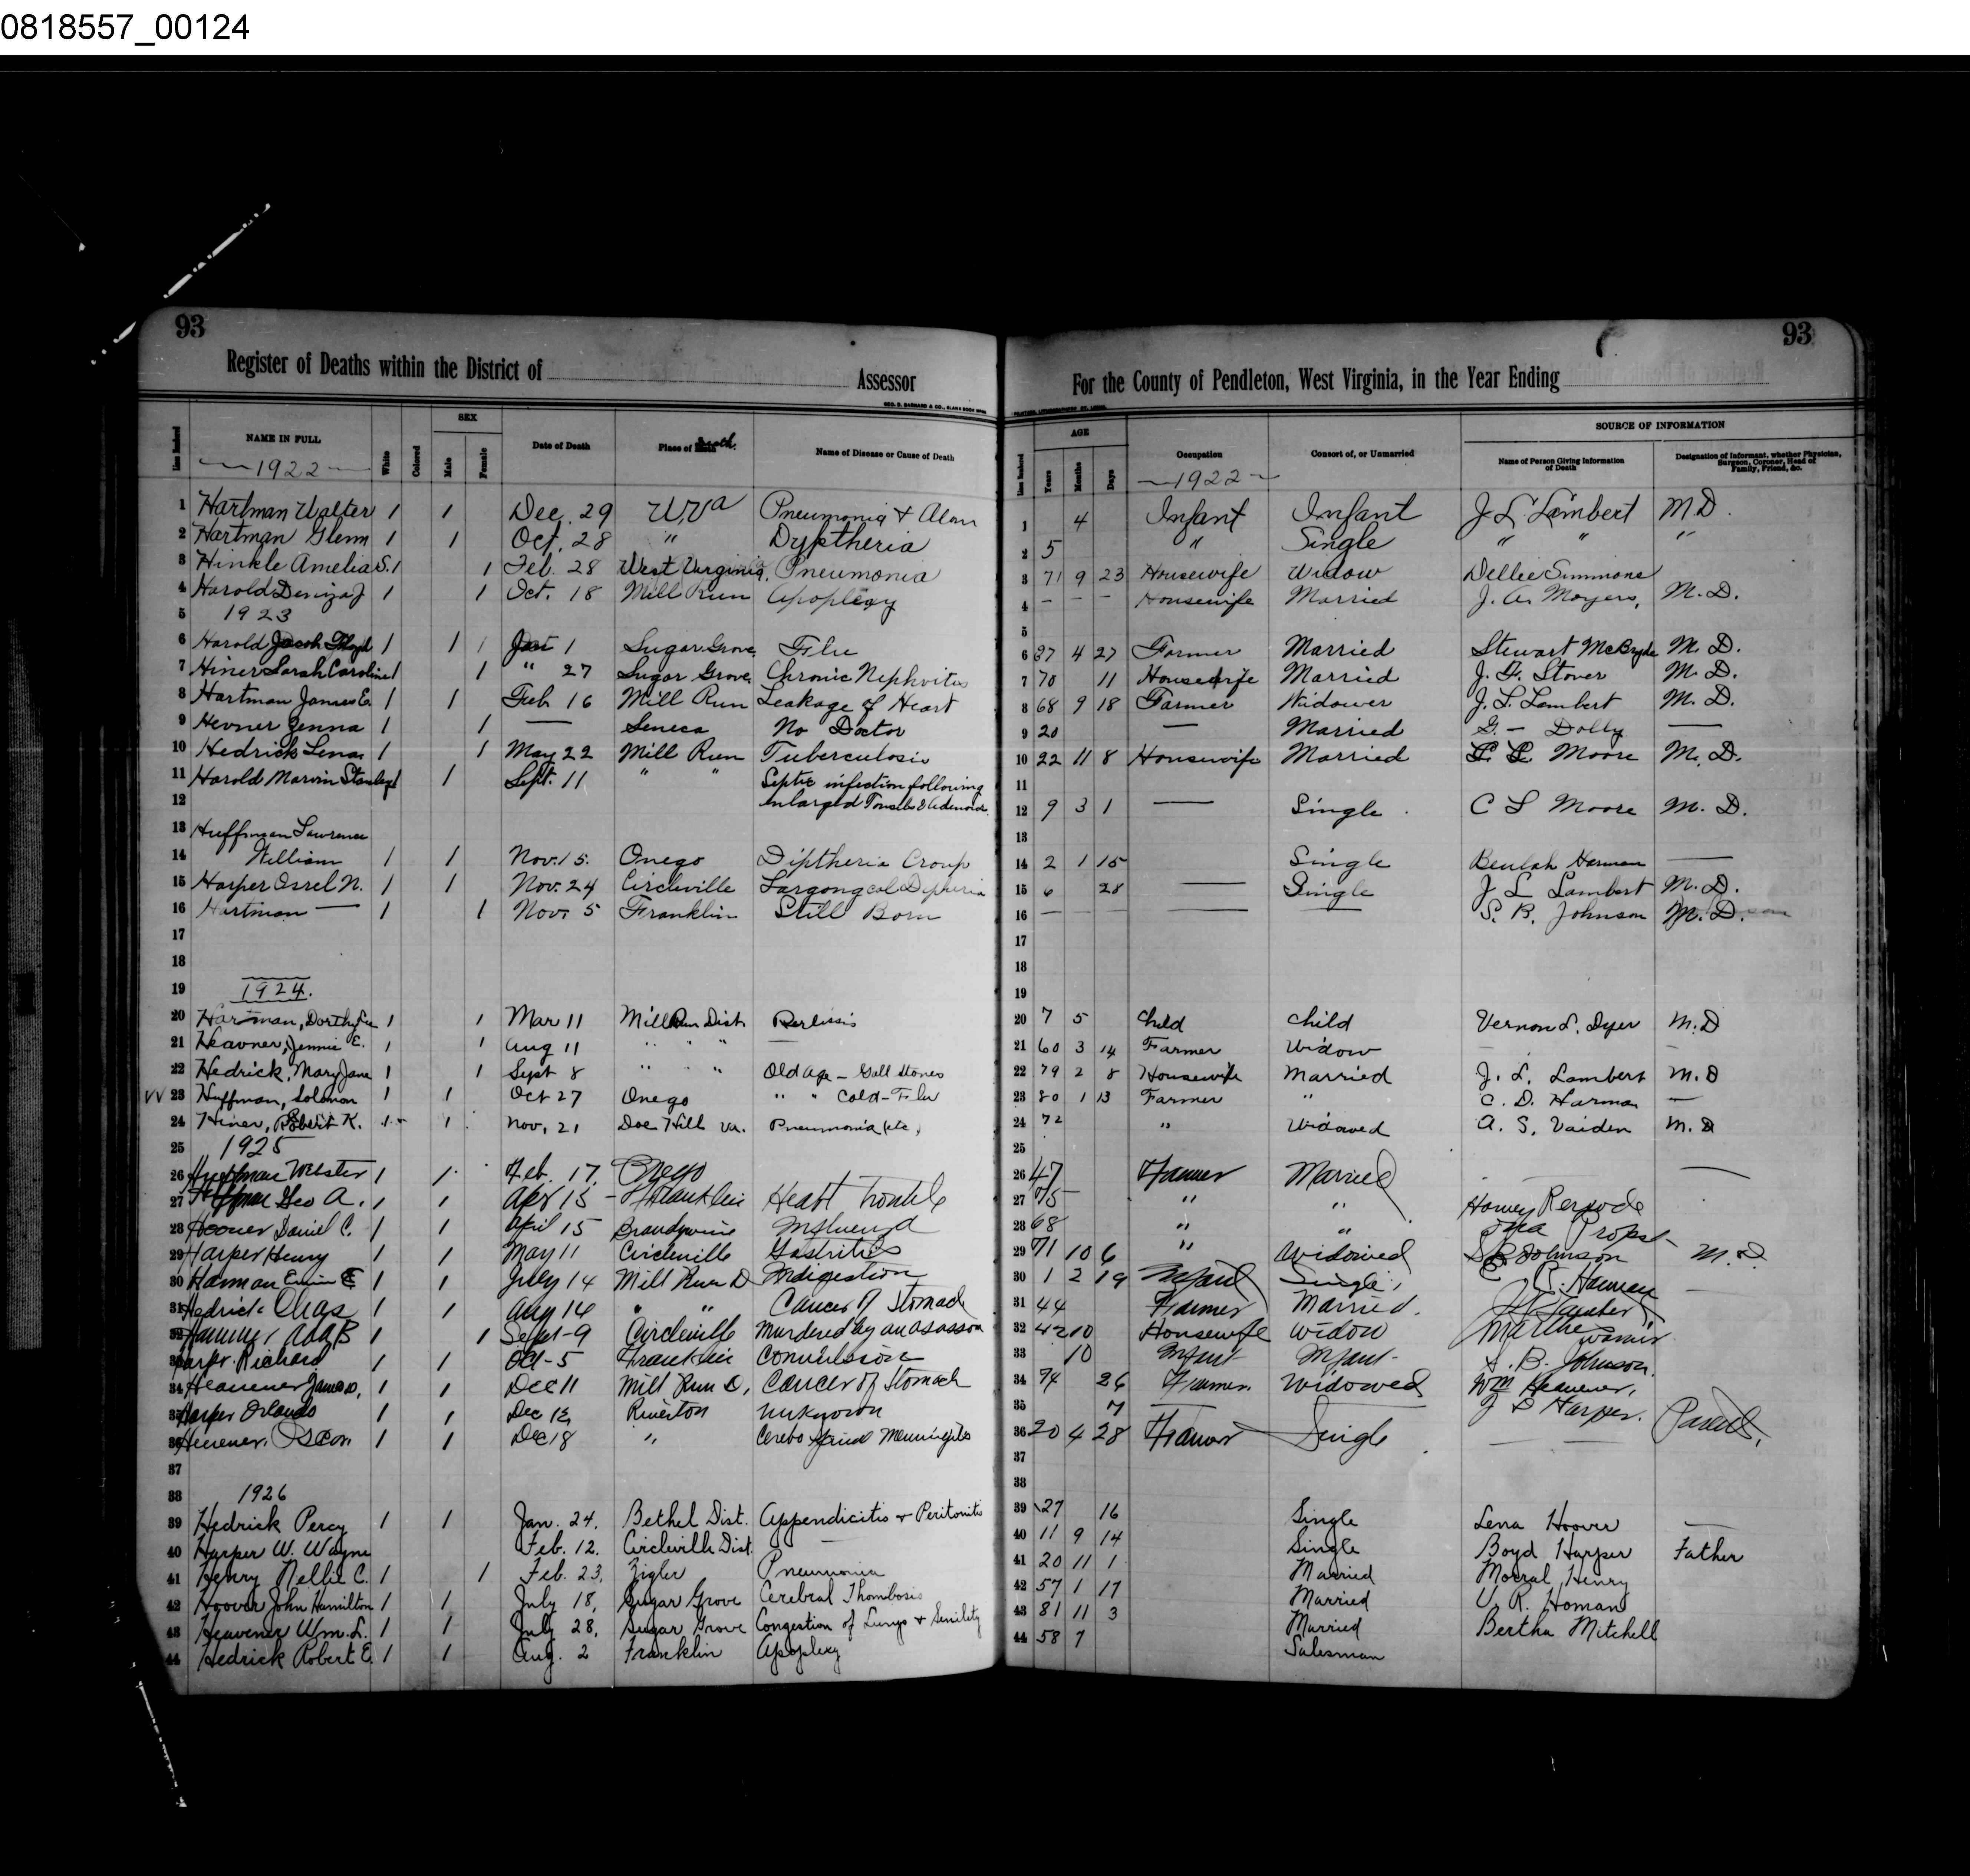 0818557_00124
93
Register of Deaths within the District of Assessor
GEO. D. BARNARD & CO., BLANK BOOK
Line Number NAME IN FULL White Colored SEX Male Female Date of Death Place of Death Name of Disease or Cause of Death
1922
1 Hartman Walter 1 1 Dec. 29 W.Va Pneumonia +
2 Hartman Glenn 1 1 Oct. 28 " Dyptheria
3 Hinkle Amelia S. 1 1 Feb. 28 West Virginia, Pneumonia
4 Harold J 1 1 Oct. 18 Mill Run Apoplexy
5 1923
6 Harold Jacob 1 1 1 Sugar Grove Flu
7 Hiner Sarah Caroline 1 1 " 27 Sugar Grove Chronic Nephritis
8 Hartman James E. 1 1 Feb 16 Mill Run Leakage of Heart
9 Hevner Zenna 1 — Seneca No Doctor
10 Hedrick Lena 1 1 May 22 Mill Run Tuberculosis
11 Harold Marvin Stanley 1 1 Sept. 11 " " Septic infection following
12 enlarged Tonsils & Adenoids
13 Huffman Lawrence
14 William 1 1 Nov. 15. Onego Diptheria Croup
15 Harper Osrel N. 1 1 Nov. 24 Circleville
16 Hartman — 1 1 Nov. 5 Franklin Still Born
17
18
19 1924.
20 Hartman, Dorthy 1 1 Mar 11 Mill Run Dist
21 Heavner, Jennie E. 1 1 Aug 11 " " " —
22 Hedrick, Mary Jane 1 1 Sept 8 " " " Old age – Gall Stones
23 Huffman, Solomon 1 1 Oct 27 Onego " " Cold–Flu
24 Hiner, Robert K. 1 1 Nov. 21 Doe Hill Va. Pneumonia, etc.,
25 1925
26 Huffman Webster 1 1 Feb. 17, Onego
27 Geo A. 1 1 Apr 15 – Franklin Heart Trouble
28 Hoover Daniel C. 1 1 April 15 Brandywine Influenza
29 Harper Henry 1 1 May 11 Circleville Gastrities
30 Harman 1 1 July 14 Mill Run D Indigestion
31 Hedrick Chas 1 1 Aug 14 " " Cancer of Stomach
32 Ada B 1 1 Sept-9 Circleville Murdered by an asasson
33 Harper Richard 1 1 Oct-5 Franklin Convulsions
34 Heavener James D, 1 1 Dec 11 Mill Run D, Cancer of Stomach
35 Harper Orlando 1 1 Dec 12 Riverton unknown
36 Heavener, 1 1 Dec 18 " Cerebo Spinal Menningitis
37
38 1926
39 Hedrick Percy 1 1 Jan. 24, Bethel Dist. Appendicitis + Peritonitis
40 Harper W. Wayne Feb. 12, Circleville Dist. —
41 Henry Nellie C. 1 1 Feb. 23, Zigler Pneumonia
42 Hoover John Hamilton 1 1 July 18, Sugar Grove Cerebral Thombosis
43 Heavener Wm. L. 1 1 July 28, Sugar Grove Congestion of Lungs + Senility
44 Hedrick Robert E. 1 1 Aug. 2 Franklin Apoplexy
93
For the County of Pendleton, West Virginia, in the Year Ending
Line Number AGE Years Months Days Occupation Consort of, or Unmarried SOURCE OF INFORMATION
Name of Person Giving Information of Death
Designation of Informant, whether Physician, Surgeon, Coroner, Head of Family, Friend, &c.
1922
1 4 Infant Infant J L Lambert M D.
2 5 " Single " " "
3 71 9 23 Housewife Widow Dellee Simmons
4 – – – Housewife Married J. A. Moyers, M. D.
5
6 37 4 27 Farmer Married Stewart McBryde M. D.
7 70 11 Housewife Married J. F. Stover M. D.
8 68 9 18 Farmer Widower J. L. Lambert M. D.
9 20 — Married G. – Dolly —
10 22 11 8 Housewife Married Moore M. D.
11
12 9 3 1 — Single. C L Moore M. D.
13
14 2 1 15 Single Beulah Harman —
15 6 28 — Single J L Lambert M. D.
16 — — — S. B. Johnson M. D.
17
18
19
20 7 5 Child Child Vernon L. Dyer M.D
21 60 3 14 Farmer Widow – –
22 79 2 8 Housewife Married J. L. Lambert M.D
23 80 1 13 Farmer " C. D. Harman —
24 72 " Widowed A. S. Vaiden M. D
25
26 47 Farmer Married —
27 75 " " Harvey Rexrode
28 68 " " Propst
29 71 10 6 " Widowed S B Johnson M. D.
30 1 2 19 Infant Single,
31 44 Farmer Married.
32 42 10 Housewife Widow Martha
33 10 Infant Infant S. B. Johnson.
34 74 26 Farmer Widowed Wm Heavener,
35 7 — J D Harper.
36 20 4 28 Farmer Single
37
38
39 27 16 Single Lena Hoover —
40 11 9 14 Single Boyd Harper Father
41 20 11 1 Married Henry
42 57 1 17 Married V. R. Homan
43 81 11 3 Married Bertha Mitchell
44 58 7 Salesman